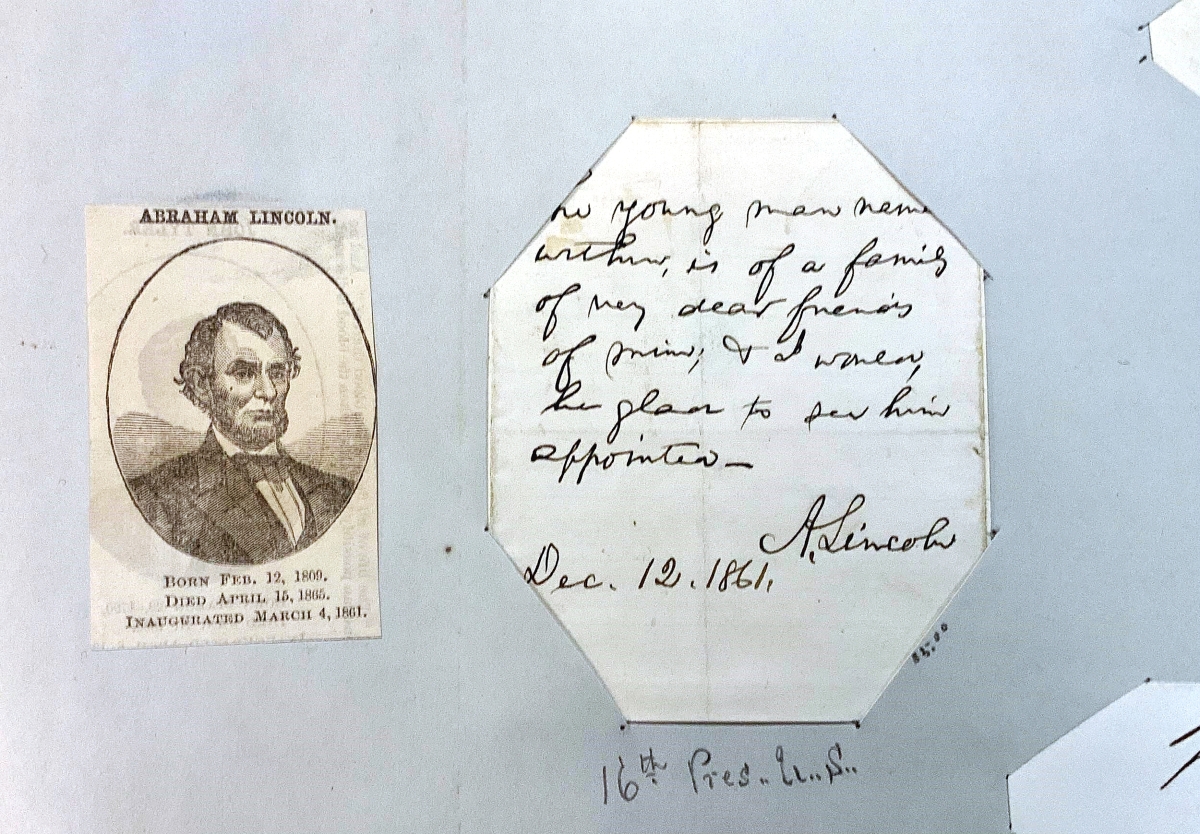 ABRAHAM LINCOLN.
BORN FEB. 12, 1809.
DIED APRIL 15, 1865.
INAUGURATED MARCH 4, 1861.
The young man name
within, is of a family
of very dear friends
of mine, & I would,
be glad to see him
appointed—
A. Lincoln
Dec. 12. 1861.
16th Pres. U.S.